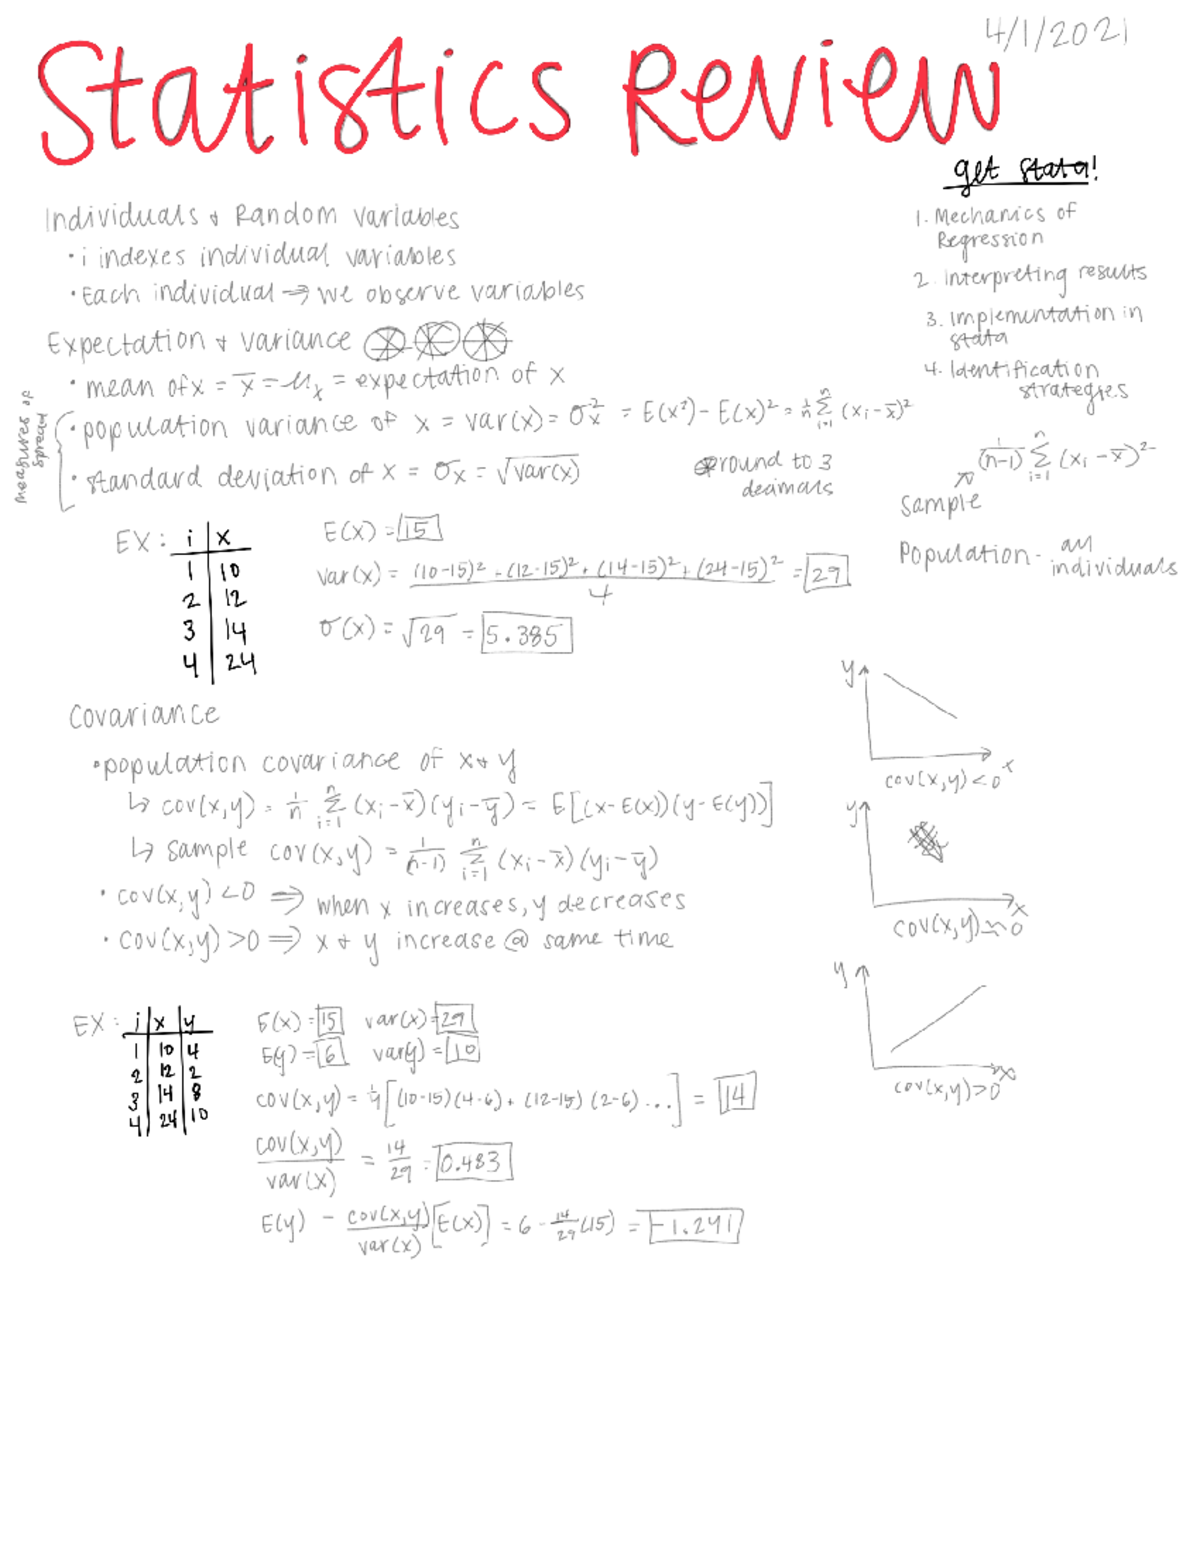 4/1/2021
Statistics Review
get stata!
1. Mechanics of
Regression
2. Interpreting results
3. Implementation in
stata
4. Identification
strategies
Individuals & Random variables
• i indexes individual variables
• Each individual → we observe variables
Expectation & variance
• mean of x = x̄ = μₓ = expectation of x
measures of
spread
• population variance of x = var(x) = σₓ² = E(x²) - E(x)² = 1/n Σᵢ₌₁ⁿ (xᵢ - x̄)²
• standard deviation of x = σₓ = √var(x)
round to 3
decimals
1/(n-1) Σᵢ₌₁ⁿ (xᵢ - x̄)²
sample
Population - all
individuals
EX: i x
1 10
2 12
3 14
4 24
E(x) = 15
var(x) = (10-15)² + (12-15)² + (14-15)² + (24-15)² / 4 = 29
σ(x) = √29 = 5.385
Covariance
• population covariance of x & y
↳ cov(x,y) = 1/n Σᵢ₌₁ⁿ (xᵢ - x̄)(yᵢ - ȳ) = E[(x - E(x))(y - E(y))]
↳ sample cov(x,y) = 1/(n-1) Σᵢ₌₁ⁿ (xᵢ - x̄)(yᵢ - ȳ)
• cov(x,y) < 0 ⇒ when x increases, y decreases
• cov(x,y) > 0 ⇒ x & y increase @ same time
y
x
cov(x,y) < 0
y
x
cov(x,y) ≈ 0
y
x
cov(x,y) > 0
EX: i x y
1 10 4
2 12 2
3 14 8
4 24 10
E(x) = 15 var(x) = 29
E(y) = 6 var(y) = 10
cov(x,y) = 1/4 [(10-15)(4-6) + (12-15)(2-6) ...] = 14
cov(x,y) / var(x) = 14/29 = 0.483
E(y) - cov(x,y)/var(x) [E(x)] = 6 - 14/29 (15) = -1.241